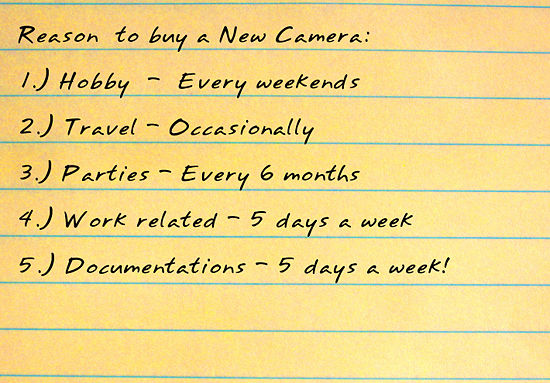 Reason to buy a New Camera:
1.) Hobby - Every weekends
2.) Travel - Occasionally
3.) Parties - Every 6 months
4.) Work related - 5 days a week
5.) Documentations - 5 days a week!